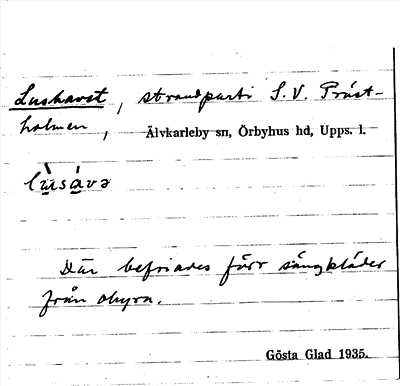 Lushavet, strandparti S.V. Präst-
holmen, Älvkarleby sn, Örbyhus hd, Upps. l.
lùsávə
Där befriades förr sängkläder
från ohyra.
Gösta Glad 1935.